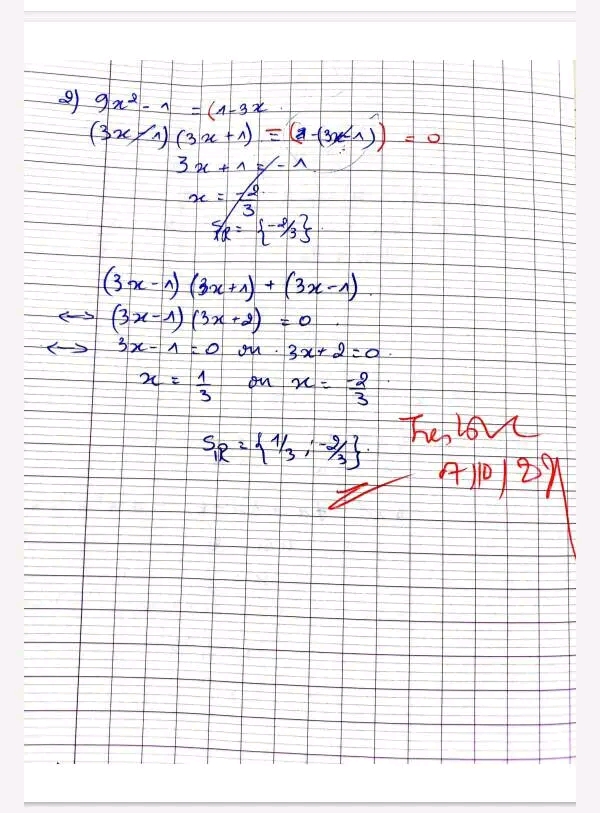 2) 9x² - 1 = (1 - 3x
(3x - 1) (3x + 1) = (-(3x - 1)) = 0
3x + 1 = - 1
x = -2/3
Sℝ = {-2/3}.
(3x - 1) (3x + 1) + (3x - 1)
↔ (3x - 1) (3x + 2) = 0
↔ 3x - 1 = 0 ou 3x + 2 = 0.
x = 1/3 ou x = -2/3
Sℝ = {1/3 ; -2/3}.